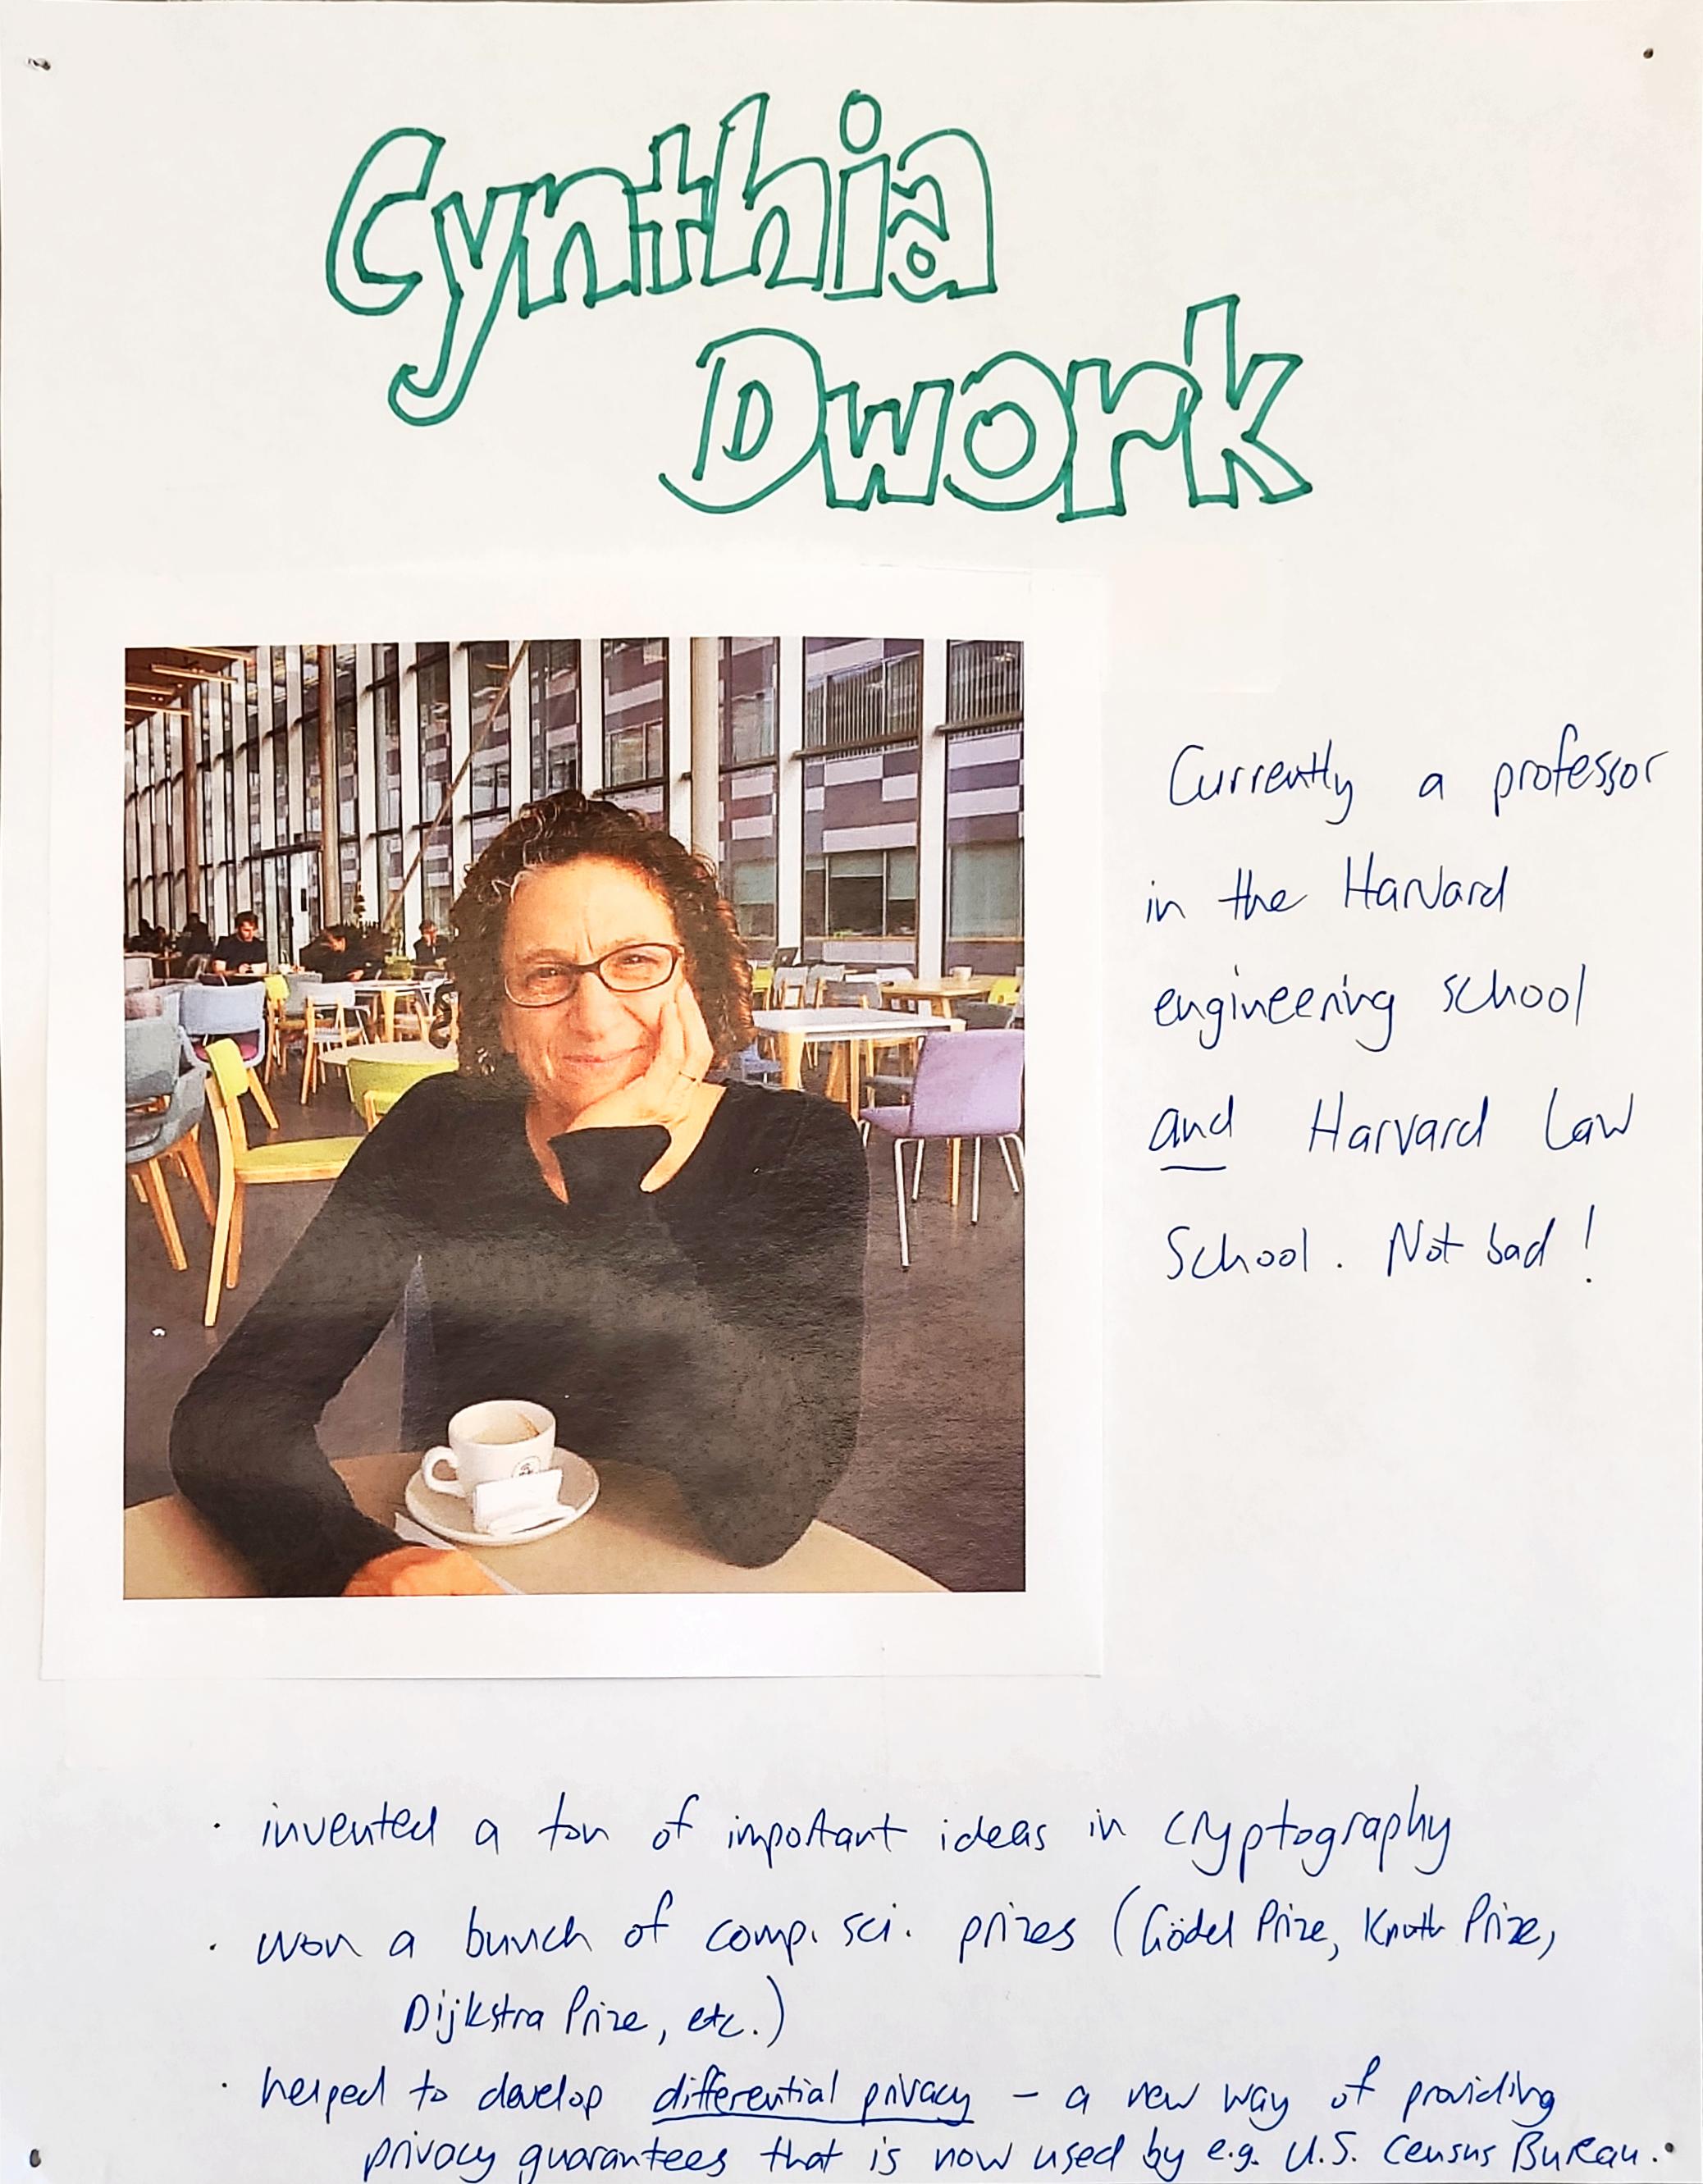 Cynthia
Dwork
Currently a professor
in the Harvard
engineering school
and Harvard Law
School. Not bad!
· invented a ton of important ideas in cryptography
· won a bunch of comp. sci. prizes (Gödel Prize, Knuth Prize,
Dijkstra Prize, etc.)
· helped to develop differential privacy – a new way of providing
privacy guarantees that is now used by e.g. U.S. Census Bureau.